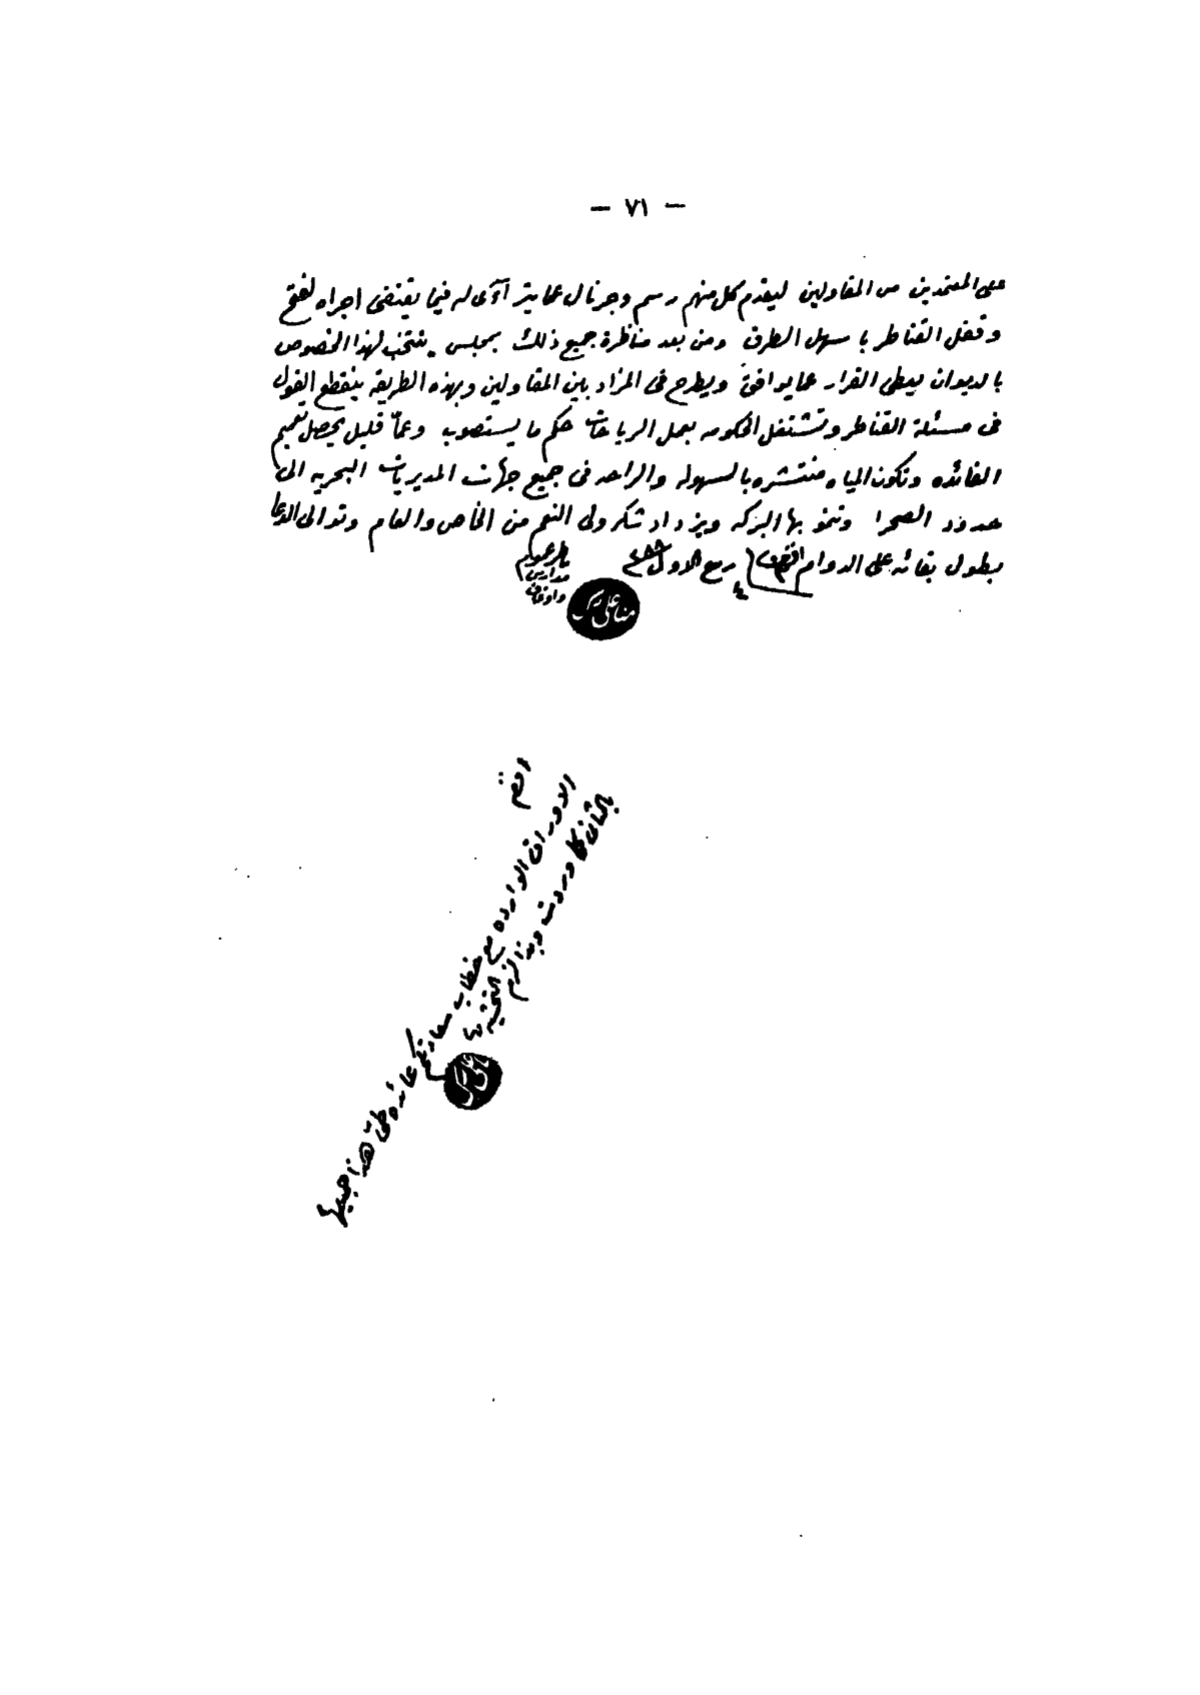 — ٧١ —
على المعتمدين من المقاولين ليقدم كل منهم رسم وجرنال عما يترآأى له فيما يقتضى اجراه لفتح
وقفل القناطر باسهل الطرق ومن بعد مناظرة جميع ذلك بمجلس ينتخب لهذا الخصوص
بالديوان يعطى القرار عما يوافق ويطرح فى المزاد بين المقاولين وبهذه الطريقه ينقطع القول
فى مسئلة القناطر وتشتغل الحكومه بعمل الرياحات حكم ما يستصوب وعمّا قليل يحصل تعميم
الفائده وتكون المياه منتشره بالسهوله والراحه فى جميع جهات المديريات البحريه الى
حدود الصحرا وتنمو بها البركه ويزداد شكر ولى النعم من الخاص والعام وتتوالى الدعا
بطول بقائه على الدوام افندم ربيع الاول ٢٨٨
ناظر عموم
مدارس
واوقاف
على
افندم
الاوراق الوارده مع خطاب سعادتكم عائده طى هذا جميعها
كما وردت وبذا لزم التحشيه